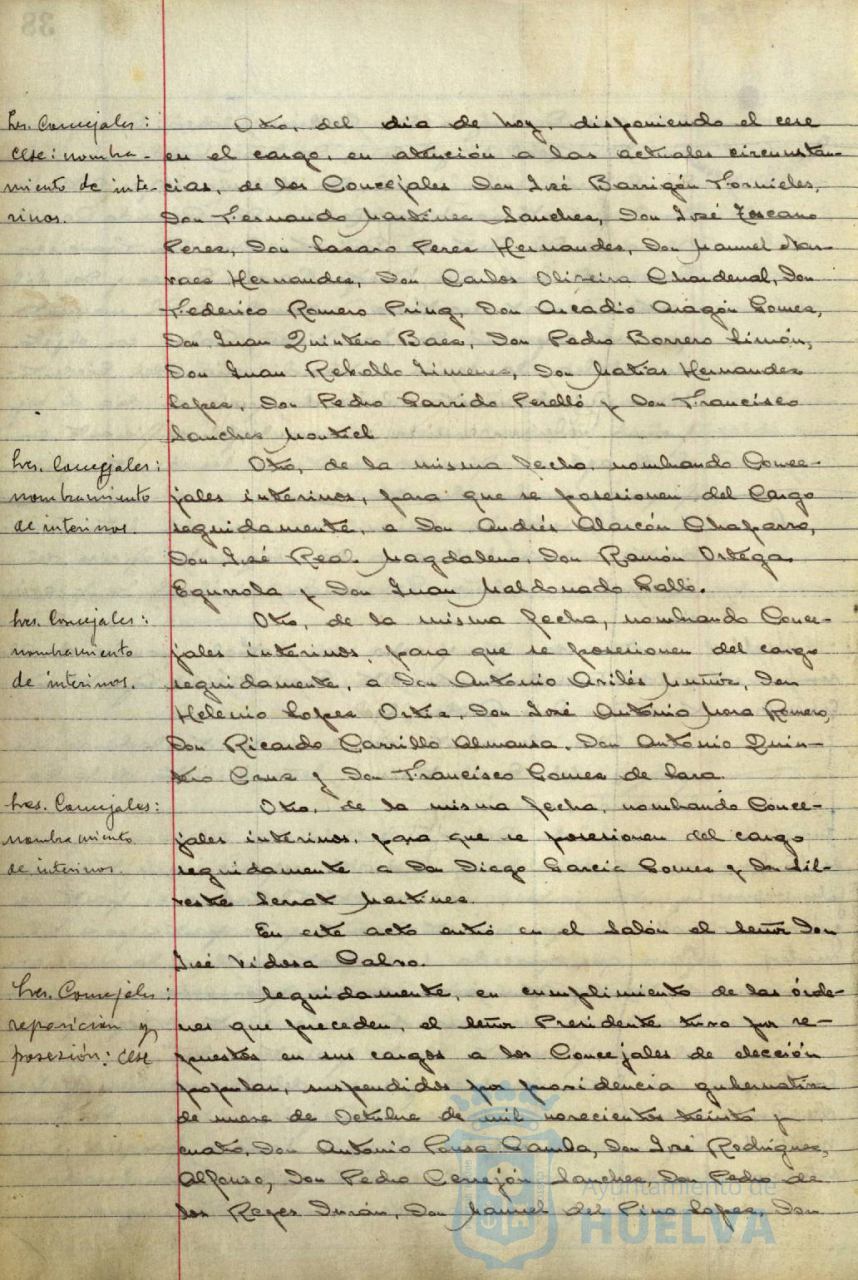 38
Sres. Concejales:
cese: nombra-
miento de inte-
rinos.
Otro, del día de hoy, disponiendo el cese
en el cargo, en atención a las actuales circunstan-
cias, de los Concejales Don José Barrigón Fornieles,
Don Fernando Martínez Sanchez, Don José Toscano
Perez, Don Lazaro Perez Hernandez, Don Manuel Nar-
vaez Hernandez, Don Carlos Oliveira Chardenal, Don
Federico Romero Pring, Don Arcadio Aragón Gomez,
Don Juan Quintero Baez, Don Pedro Borrero Limón,
Don Juan Rebollo Jimenez, Don Matías Hernandez
Lopez, Don Pedro Garrido Perelló y Don Francisco
Sanchez Montiel
Sres. Concejales:
nombramiento
de interinos.
Otro, de la misma fecha, nombrando Conce-
jales interinos, para que se posesionen del Cargo
seguidamente, a Don Andrés Alarcón Chaparro,
Don José Real Magdaleno, Don Ramón Ortega
Egurrola y Don Juan Maldonado Galló.
Sres. Concejales:
nombramiento
de interinos.
Otro, de la misma fecha, nombrando Conce-
jales interinos, para que se posesionen del cargo
seguidamente, a Don Antonio Avilés Muñoz, Don
Helenio Lopez Ortiz, Don José Antonio Mora Romero,
Don Ricardo Carrillo Almansa, Don Antonio Quin-
tero Cruz y Don Francisco Gomez de Lara.
Sres. Concejales:
nombramiento
de interinos.
Otro, de la misma fecha, nombrando Conce-
jales interinos, para que se posesionen del cargo
seguidamente a Don Diego Garcia Gomez y Don Sil-
vestre Serrat Martinez.
En este acto entró en el Salón el Señor Don
José Vidosa Calvo.
Sres. Concejales:
reposición y
posesión: cese
Seguidamente, en cumplimiento de las órde-
nes que preceden, el Señor Presidente tuvo por re-
puestos en sus cargos a los Concejales de elección
popular, suspendidos por providencia gubernativa
de nueve de Octubre de mil novecientos treinta y
cuatro, Don Antonio Ponsa Camba, Don José Rodríguez
Alfonso, Don Pedro Cerrejón Sanchez, Don Pedro de
los Reyes Durán, Don Manuel del Pino Lopez, Don
Ayuntamiento de
HUELVA